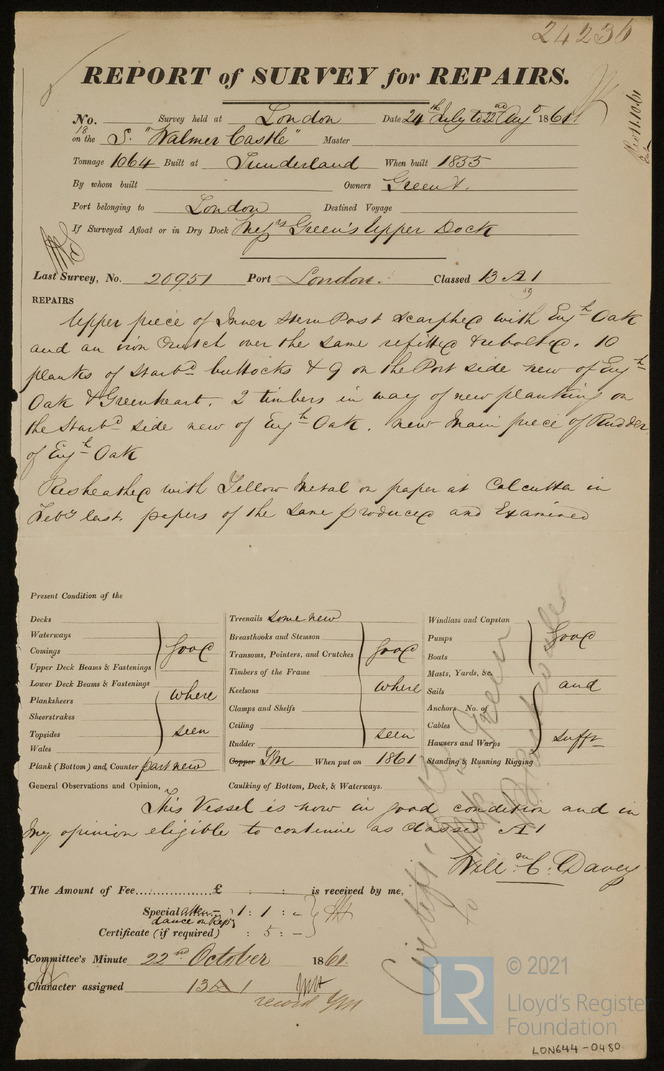 24236
REPORT of SURVEY for REPAIRS.
No. Survey held at London Date 24th July to 22nd Augt 1861
on the S. "Walmer Castle" Master
Tonnage 1064 Built at Sunderland When built 1855
By whom built Owners Green &.
Port belonging to London Destined Voyage
If Surveyed Afloat or in Dry Dock Messrs Green's Upper Dock
Last Survey, No. 20951 Port London. Classed 13 A 1
REPAIRS
Upper piece of Inner Stern Post scarphed with Engh Oak
and an iron Crutch over the same refitted & rebolted. 10
planks of Starbd buttocks & 9 on the Port side new of Engh
Oak & Greenheart. 2 timbers in way of new planking on
the Starbd side new of Engh Oak. New Main piece of Rudder
of Engh Oak
Resheathed with Yellow Metal on paper at Calcutta in
Feby last, papers of the same produced and Examined
Present Condition of the
Decks
Waterways
Comings
Upper Deck Beams & Fastenings
Lower Deck Beams & Fastenings
Planksheers
Sheerstrakes
Topsides
Wales
good
where
seen
Plank (Bottom) and Counter part new
Treenails some new
Breasthooks and Stemson
Transoms, Pointers, and Crutches
Timbers of the Frame
Keelsons
Clamps and Shelfs
Ceiling
Rudder
good
where
seen
Copper YM When put on 1861
Windlass and Capstan
Pumps
Boats
Masts, Yards, &c
Sails
Anchors No. of
Cables
Hawsers and Warps
good
and
sufft
Standing & Running Rigging
General Observations and Opinion, Caulking of Bottom, Deck, & Waterways.
This Vessel is now in good condition and in
my opinion eligible to continue as classed A1
Willm C. Davey
The Amount of Fee £ : : is received by me,
Special Attendance on Reps 1 : 1 : -
Certificate (if required) : 5 : -
Committee's Minute 22nd October 1861
Character assigned 13 A 1
record YM
Certife
to
Green
© 2021
LR
Lloyd's Register
Foundation
LON644-0480